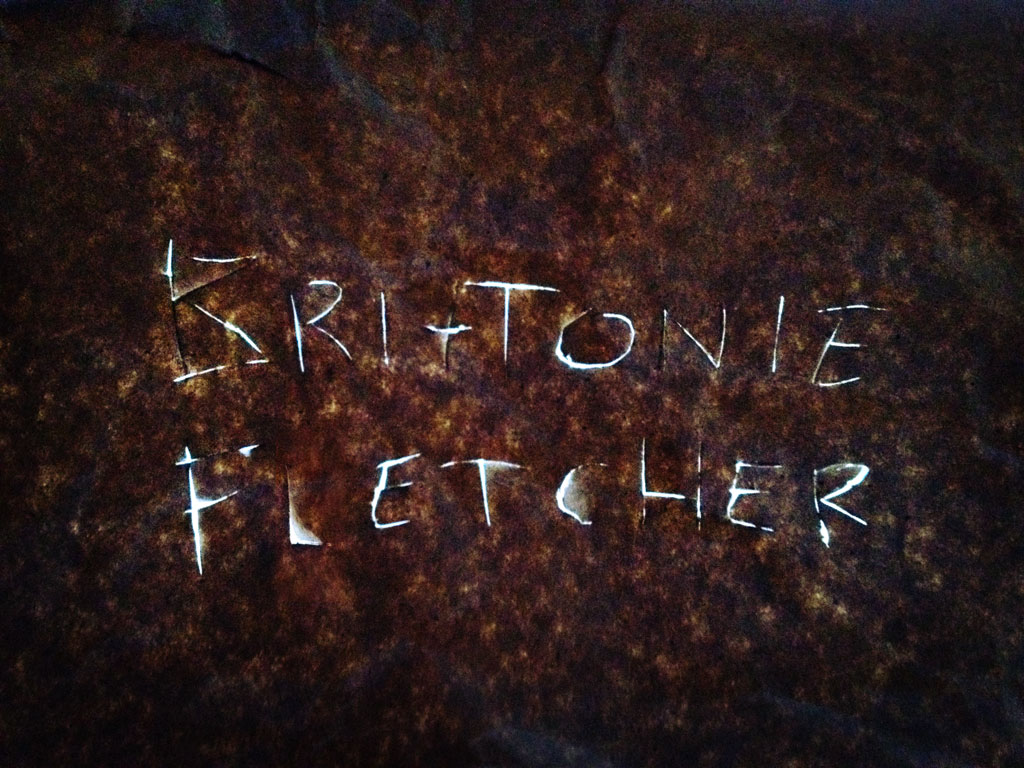 BRI+TONIE
FLETCHER